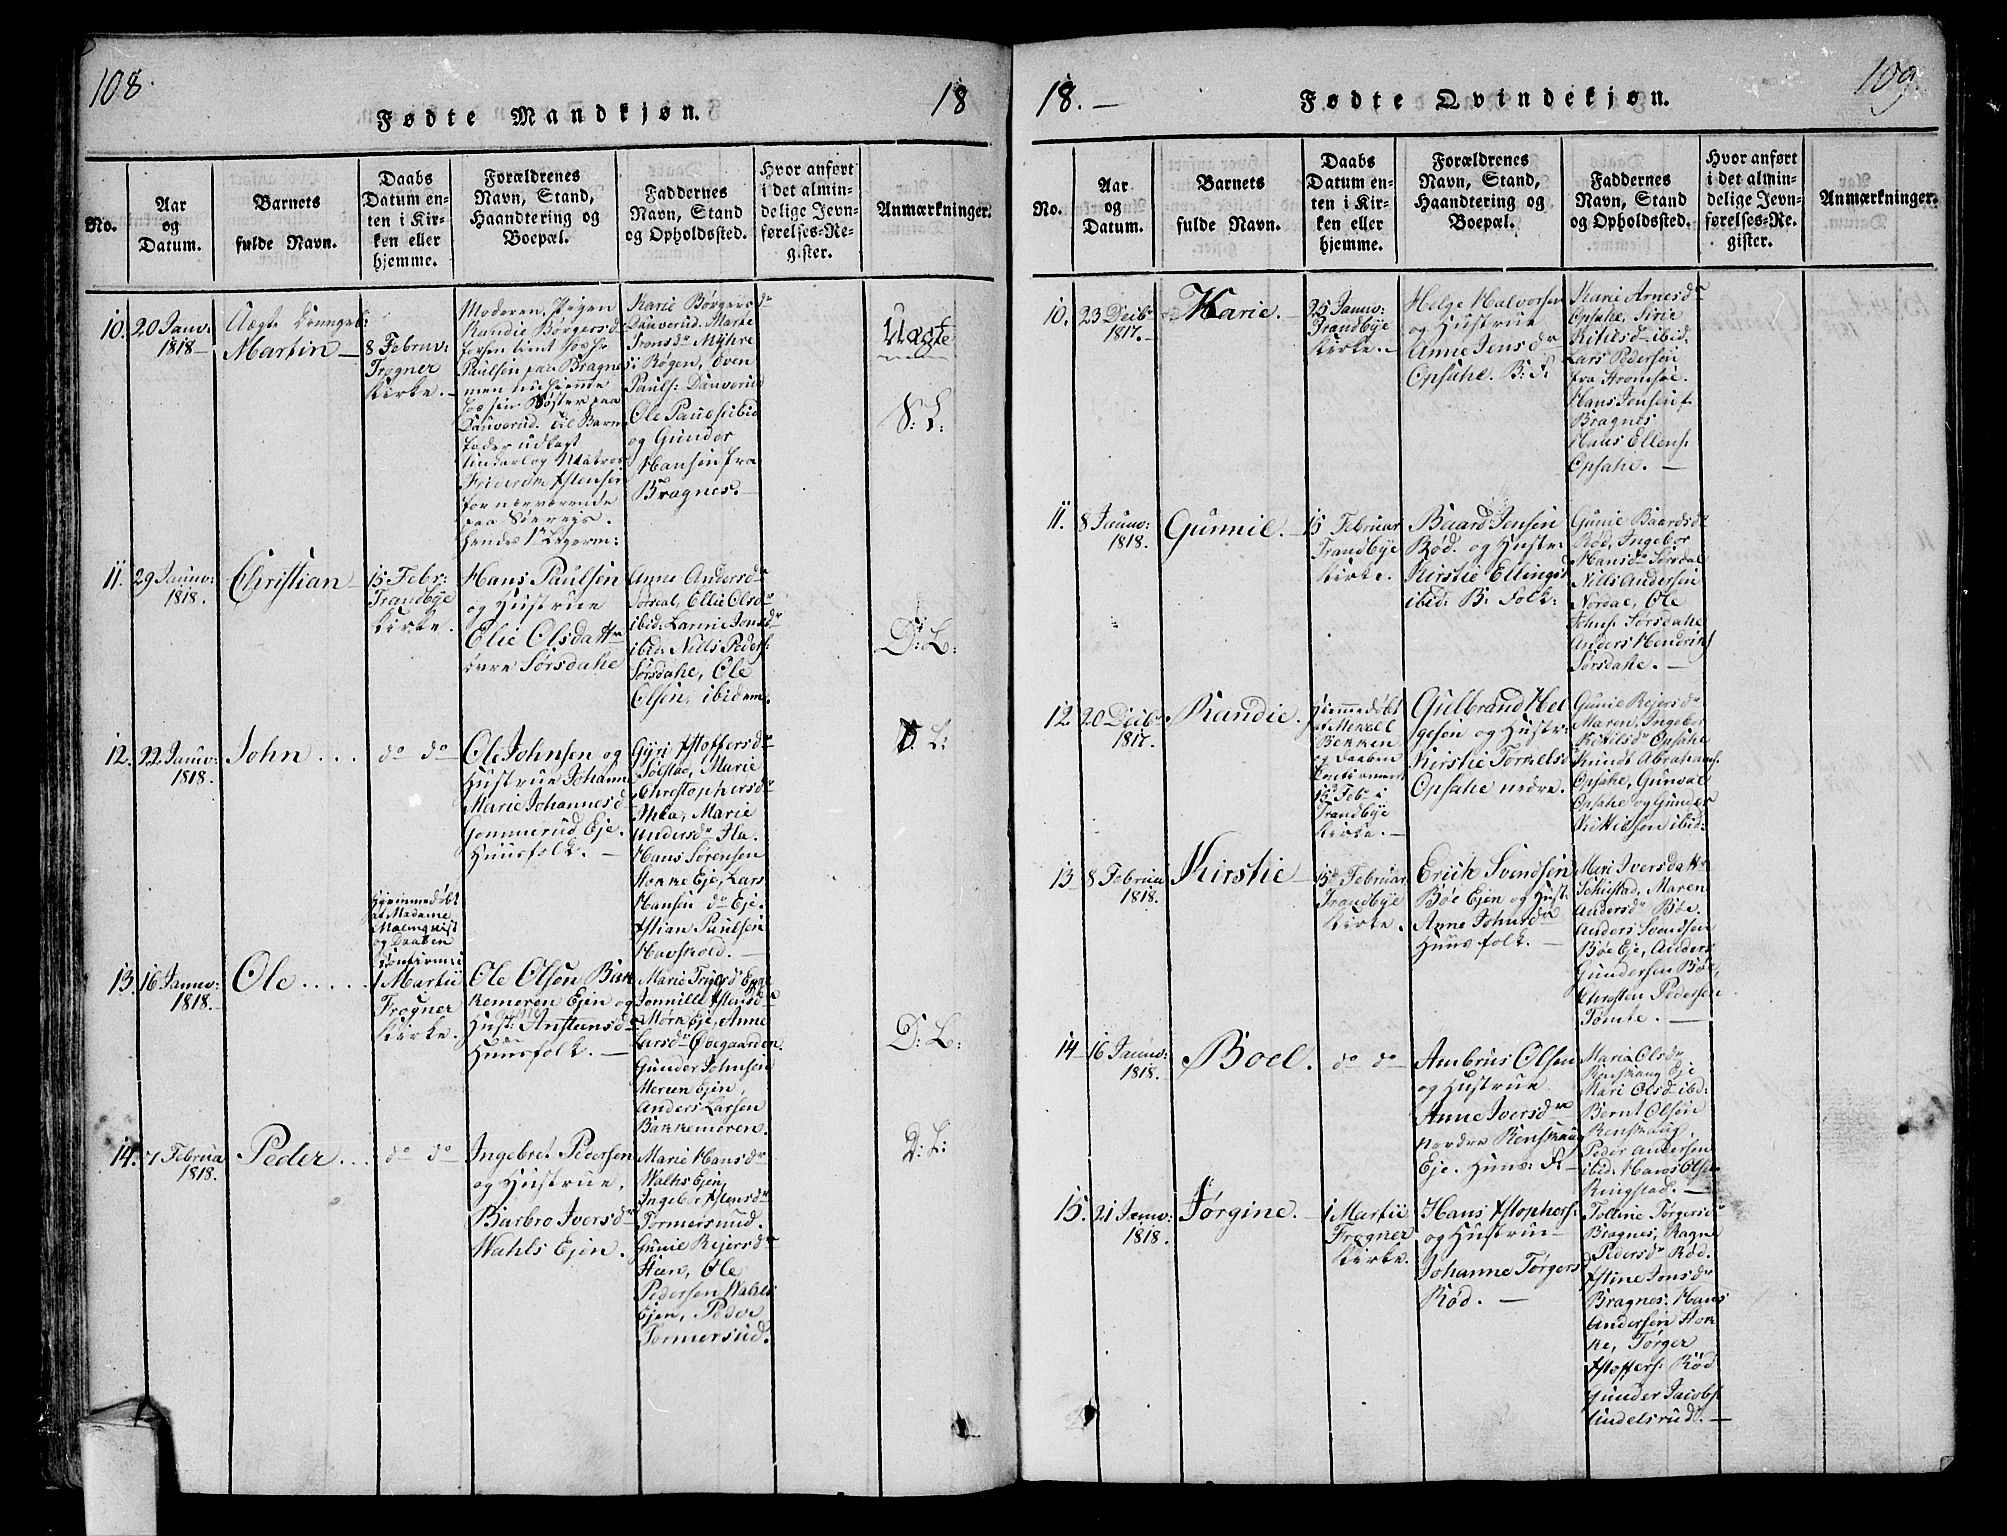 108.
18
Fødte Mandkjøn.
No.
Aar
og
Datum.
Barnets
fulde Navn.
Daabs
Datum en-
ten i Kir-
ken eller
hjemme.
Forældrenes
Navn, Stand,
Haandtering og
Boepæl.
Faddernes
Navn, Stand
og Opholdssted.
Hvor anført
i det almin-
delige Jevn-
førelses-Re-
gister.
Anmærkninger.
10.
20 Januv:
1818.
Uægte
Martin
8 Februv:
Frogner
Kirke.
Moderen, Pigen
Randie Børgersd
Paulsen paa Bragnes
men
Søster paa
Dauverud. til Barne
fader udlagt
Matros
for nærværende
paa Søereis.
Hendes 1te Legerm:
Karie Børgersdr
Dauverud. Marte
Myhre
i Røgen, Even
Pauls: Dauverud
Ole Pauls: ibid
og Gunder
Hansen fra
Bragnes.
Uægte
S: L:
11.
29 Januv:
1818.
Christian
15 Febr:
Trandbye
Kirke.
Hans Paulsen
og Hustrue
Elie Olsdattr
øvre Sørsdahe
Anne Andersdr
Sørsdal, Ellie Olsdr
ibid: Larine Jonsdr
ibid: Niels Peders:
Sørsdahe, Ole
Olsen, ibidem.
D: L:
12.
22 Januv:
1818.
John
do do
Ole Johnsen og
Hustrue Johanne
Marie Johannesd
Gommerud Eje.
Huusfolk.
Gyri Astoffersdr
Solstad, Marie
Christophersdr
Marie
Andersdr Ila.
Hans Sørensen
Hokke Eje, Lars
Hansen do Eje
Astian Paulsen
Havskold.
D: L:
13.
16 Januv:
1818.
Ole
Hjemmedøbt
af Madame
Malmqvist
og Daaben
Confirm:
1 Martii
Frogner
Kirke.
Ole Olsen Bak
kemoren Ejen og
Hust: Anne Anstensd
Huusfolk.
Marie
Mørk Eje, Anne
Larsdr Ovegaarden
Gunder Johnsen
Moreen Ejen
Anders Larsen
Bakkemoren.
D: L:
14.
7 Februa
1818.
Peder
do do
Ingebret Pedersen
og Hustrue
Barbro Iversdr
Wahls Ejen.
Marie Hansdr
Walhs Ejen,
Ingebor Astensdr
Tormersuud.
Gunie Rejersdr
Steen, Ole
Pedersen Wahls
Ejen, Peder
Tormersud.
D: L:
18.
109.
Fødte Qvindekjøn.
No.
Aar
og
Datum.
Barnets
fulde Navn.
Daabs
Datum en-
ten i Kir-
ken eller
hjemme.
Forældrenes
Navn, Stand,
Haandtering og
Boepæl.
Faddernes
Navn, Stand
og Opholdssted.
Hvor anført
i det almin-
delige Jevn-
førelses-Re-
gister.
Anmærkninger.
10.
23 Decbr
1817.
Karie.
25 Januv:
Trandbye
Kirke.
Helge Halvorsen
og Hustrue
Anne Jensdr
Opsahe. B: F:
Karie Arnesdr
Opsahe, Sirie
Kitilsd ibid.
Lars Pedersen
fra Strømsøe.
Hans Jensen f.
Bragnes
Hans Ellens:
Opsahe.
11.
8 Januv:
1818.
Gunnil.
15 Februar
Trandbye
Kirke.
Baard Jensen
Rød. og Hustr:
Kirstie Ellingsd
ibid: B: Folk:
Gunie Baardsdr
Rød, Ingebor
Hansdr Sørsdal
Niels Andersen
Nordal, Ole
Johns: Sørsdahe
Anders Hendriks
Sørsdahe.
12.
20 Decbr
1817.
Randie.
Hjemmedøbt
af Mekkel
Bekken
og Daaben
Confirmert
15d Febr i
Trandbye
Kirke.
Gulbrand Hel
gesen og Hustr:
Kirstie Torkelsd
Opsahe nedre.
Gunie Rejersdr
Maren, Ingebor
Kittilsdr Opsahe
Knudt Abrahams:
Opsahe, Gunval
Opsahe og Gunder
Kittilsen ibid:
13
8 Februa
1818.
Kirstie
15d Februar
Trandbye
Kirke.
Erich Svendsen
Bøe Ejen og Hust:
Anne Johnsdr
Huusfolk.
Mari Iversdattr
Solustad, Maren
Andersdr Bøe.
Anders Svendsen
Bøe Eje, Anders
Gundersen Bøe,
Christen Pedersen
Tomte.
14
16 Januv:
1818.
Boel.
do do
Ambrus Olsen
og Hustrue
Anne Iversdr
nordre Renskaug
Eje. Huus: F:
Maria Olsdr
Renskaug Eje
Mari Olsd ibid:
Bernt Olsen
Renskaug,
Peder Andersen
ibid: Hans Olsen
Ringstad.
15.
21 Januv:
1818.
Jørgine.
1 Martii
Frogner
Kirke.
Hans Astophers:
og Hustrue
Johanne Tørgers
Rød.
Tolline Tørgersdr
Bragnes, Ragne
Pedersdr Rød.
Astine Jonsdr
Bragnes: Hans
Andersen Hok
ke, Tørger
Astoffers: Rød
Gunder Jacobs:
Lindelsrud.